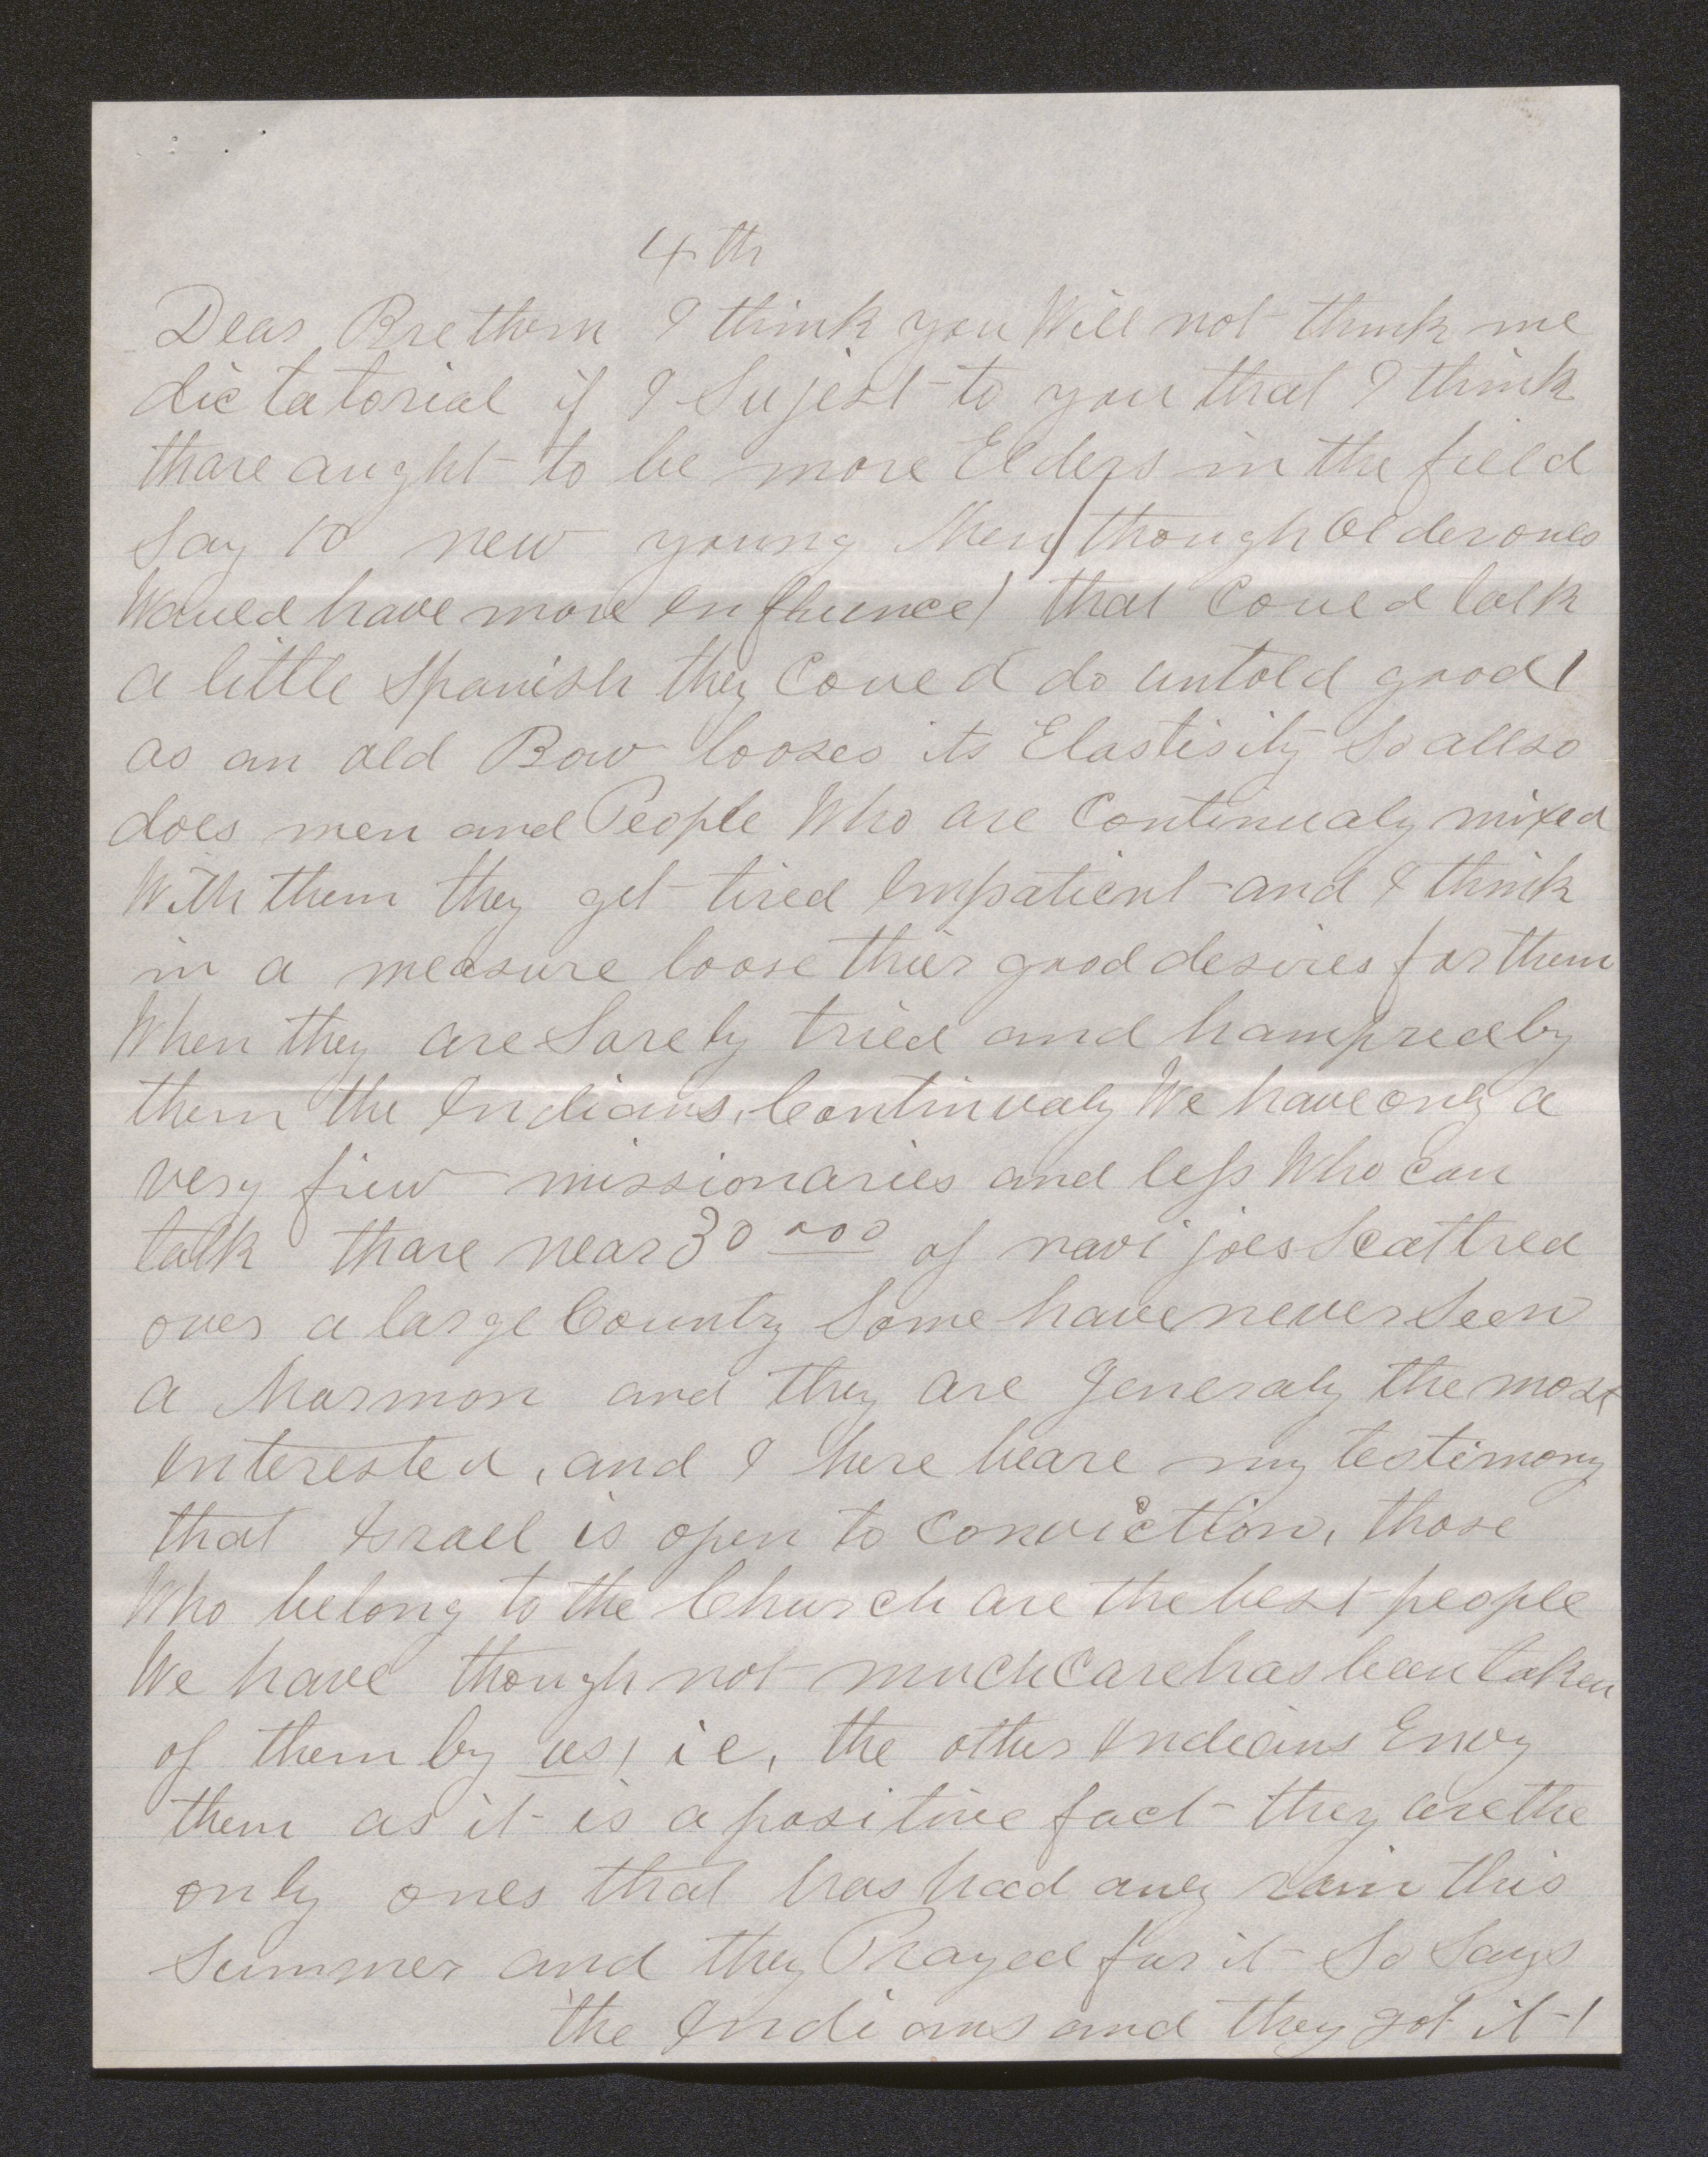 4th
Dear Brethern I think you Will not think me
dictatorial if I Sujest to you that I think
thare aught to be more Elders in the field
Say 10 new young Men / though Older ones
Would have more Influence / that Coued talk
a little Spanish they Coued do untold good /
as an old Bow looses its Elastisity So allso
does men and People Who are Continualy mixed
With them they get tired Impatient and I think
in a measure loose thier good desires for them
When they are Sorely tried and hampred by
them the Indians, Continualy We have only a
very fiew missionaries and less Who can
talk thare near 30 000 of navijoes Scattred
over a large Country Some have never Seen
a Mormon and they are Generaly the most
Interested, and I here beare my testimony
that Israel is open to Conviction, those
Who belong to the Church are the best people
We have though not much Care has been taken
of them by us, ie, the other Indians Envy
them as it is a positive fact they are the
only ones that has had any rain this
Summer and they Prayed for it So Says
the Indians and they got it /